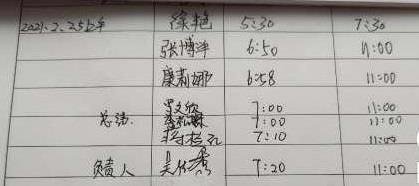 2021.2.25上午 徐艳 5:30 7:30
张博洋 6:50 11:00
康莉娜 6:58 11:00
总结: 7:00 11:00
7:00 11:00
7:10 11:00
负责人 7:20 11:00